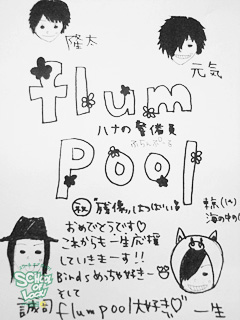 隆太
元気
flum
ハナの警備員
ふらんぷーる
pool
祝 "残像" はっぱい
おめでとうです♡
これからも一生応援
していきまーす!!
Birdsめっちゃ好きー
そして
flumpool大好き♡
誠司
一生
SCHOOL OF LOCK!